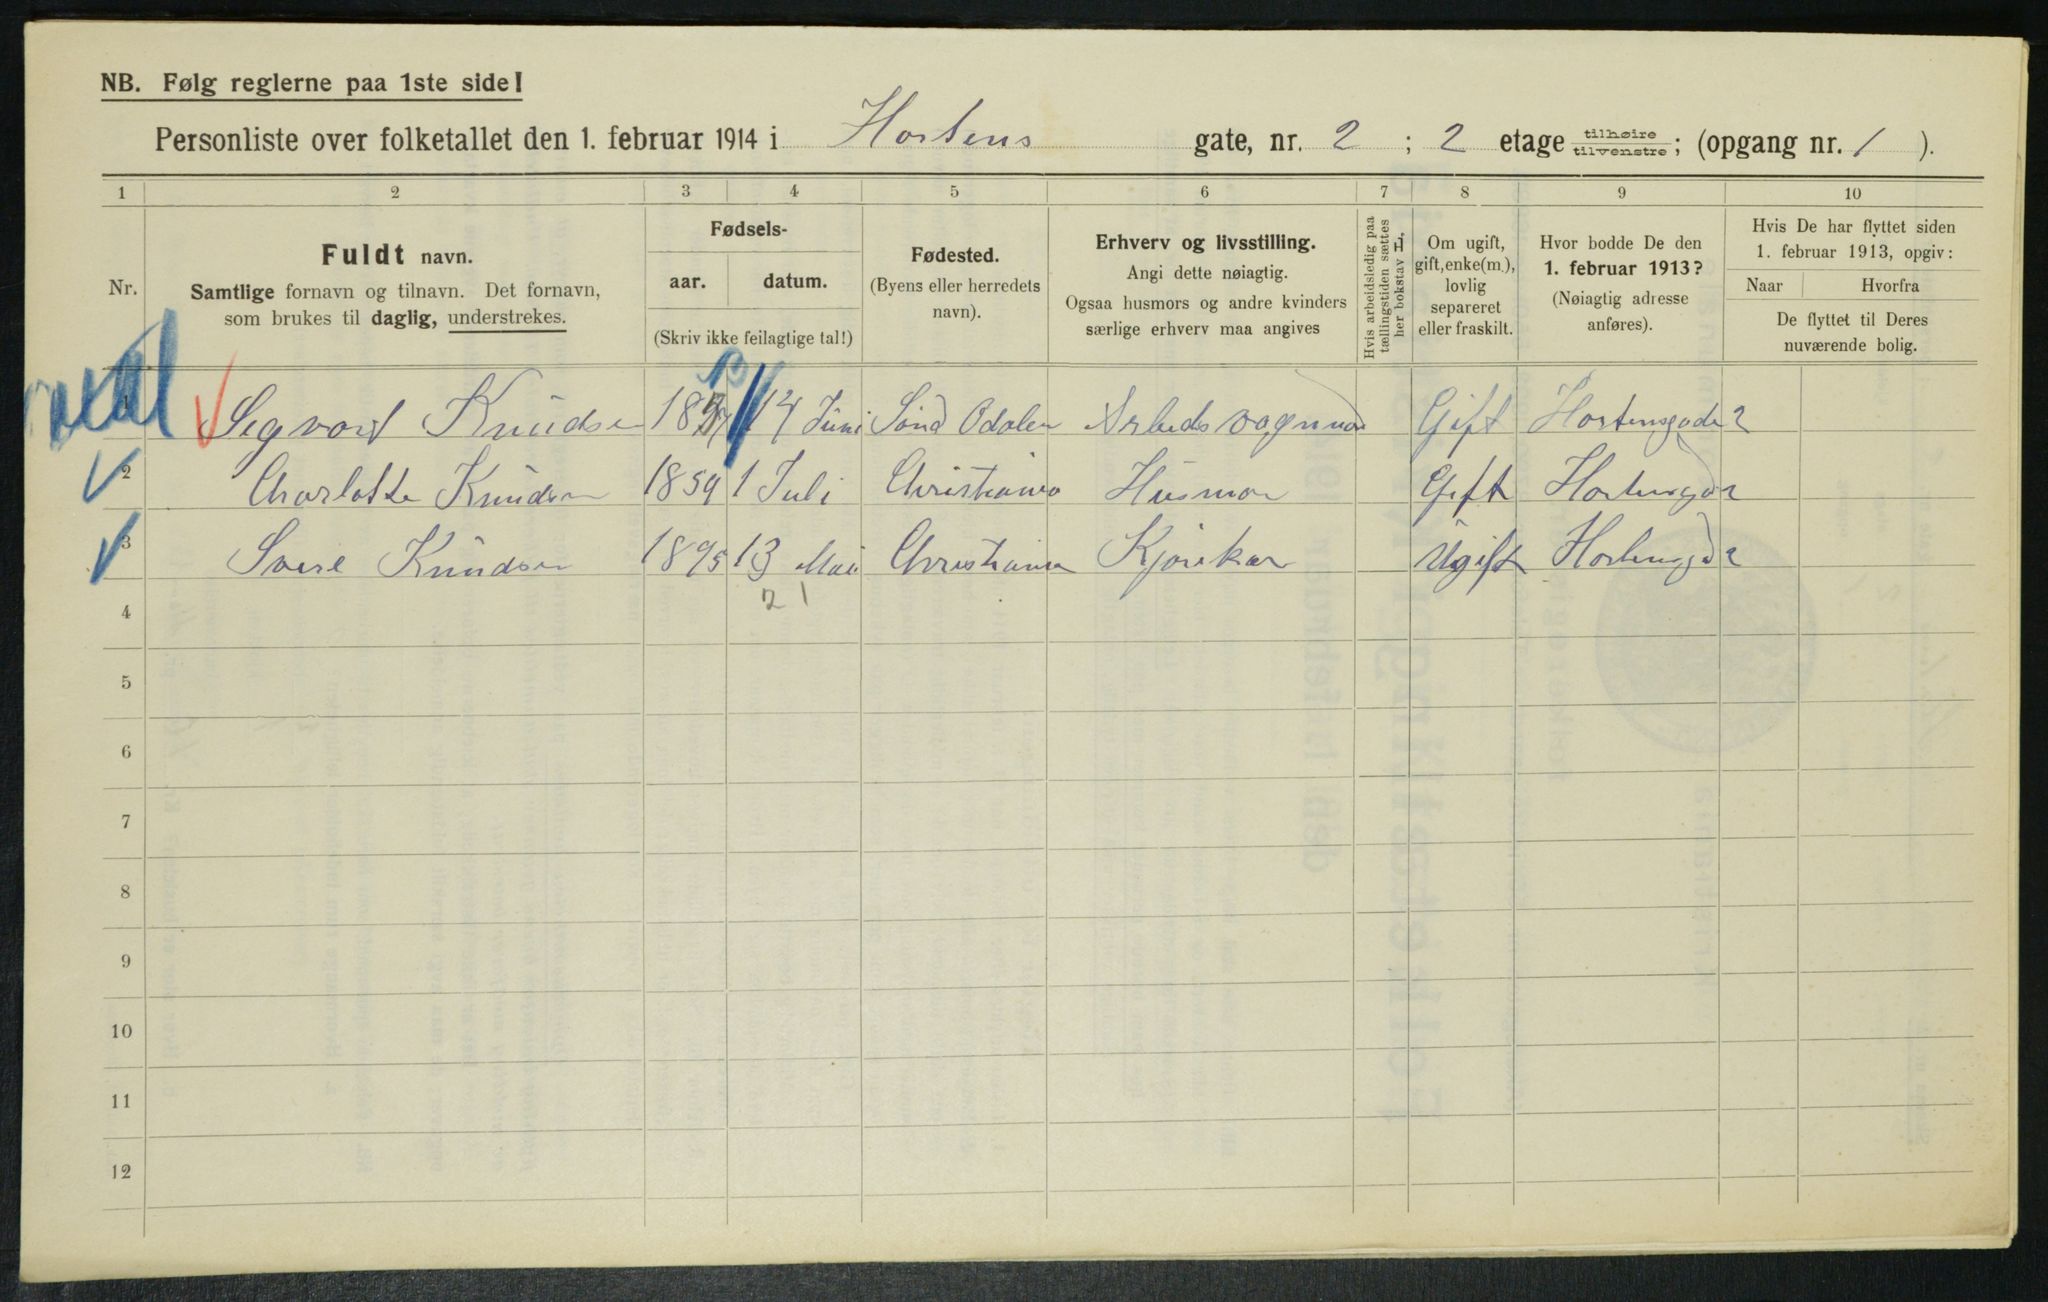 NB. Følg reglerne paa 1ste side!
Personliste over folketallet den 1. februar 1914 i Hortens gate, nr. 2 ; 2 etage tilhøire tilvenstre ; (opgang nr. 1 ).
1 2 3 4 5 6 7 8 9 10
Nr.
Fuldt navn.
Samtlige fornavn og tilnavn. Det fornavn,
som brukes til daglig, understrekes.
Fødsels-
aar. datum.
(Skriv ikke feilagtige tal!)
Fødested.
(Byens eller herredets
navn).
Erhverv og livsstilling.
Angi dette nøiagtig.
Ogsaa husmors og andre kvinders
særlige erhverv maa angives
Hvis arbeidsledig paa
tællingstiden sættes
her bokstav H,
Om ugift,
gift, enke(m.),
lovlig
separeret
eller fraskilt.
Hvor bodde De den
1. februar 1913?
(Nøiagtig adresse
anføres).
Hvis De har flyttet siden
1. februar 1913, opgiv:
Naar Hvorfra
De flyttet til Deres
nuværende bolig.
1 Sigvart Knudsen 14 Juni Sønd Odalen Arbeds vognman Gift Hortensgade 2
2 Charlotte Knudsen 1859 1 Juli Christiania Husmor Gift Hortensgd 2
3 Knudsen 1895 13 Mai Christiania Kjørekar Ugift Hortensgd 2
21
4
5
6
7
8
9
10
11
12